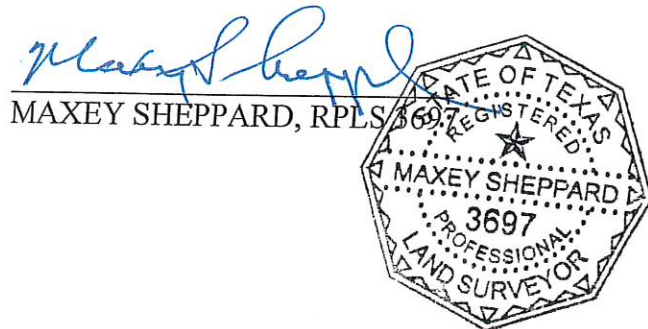 Maxey Sheppard
MAXEY SHEPPARD, RPLS 3697
STATE OF TEXAS
REGISTERED
MAXEY SHEPPARD
3697
PROFESSIONAL
LAND SURVEYOR